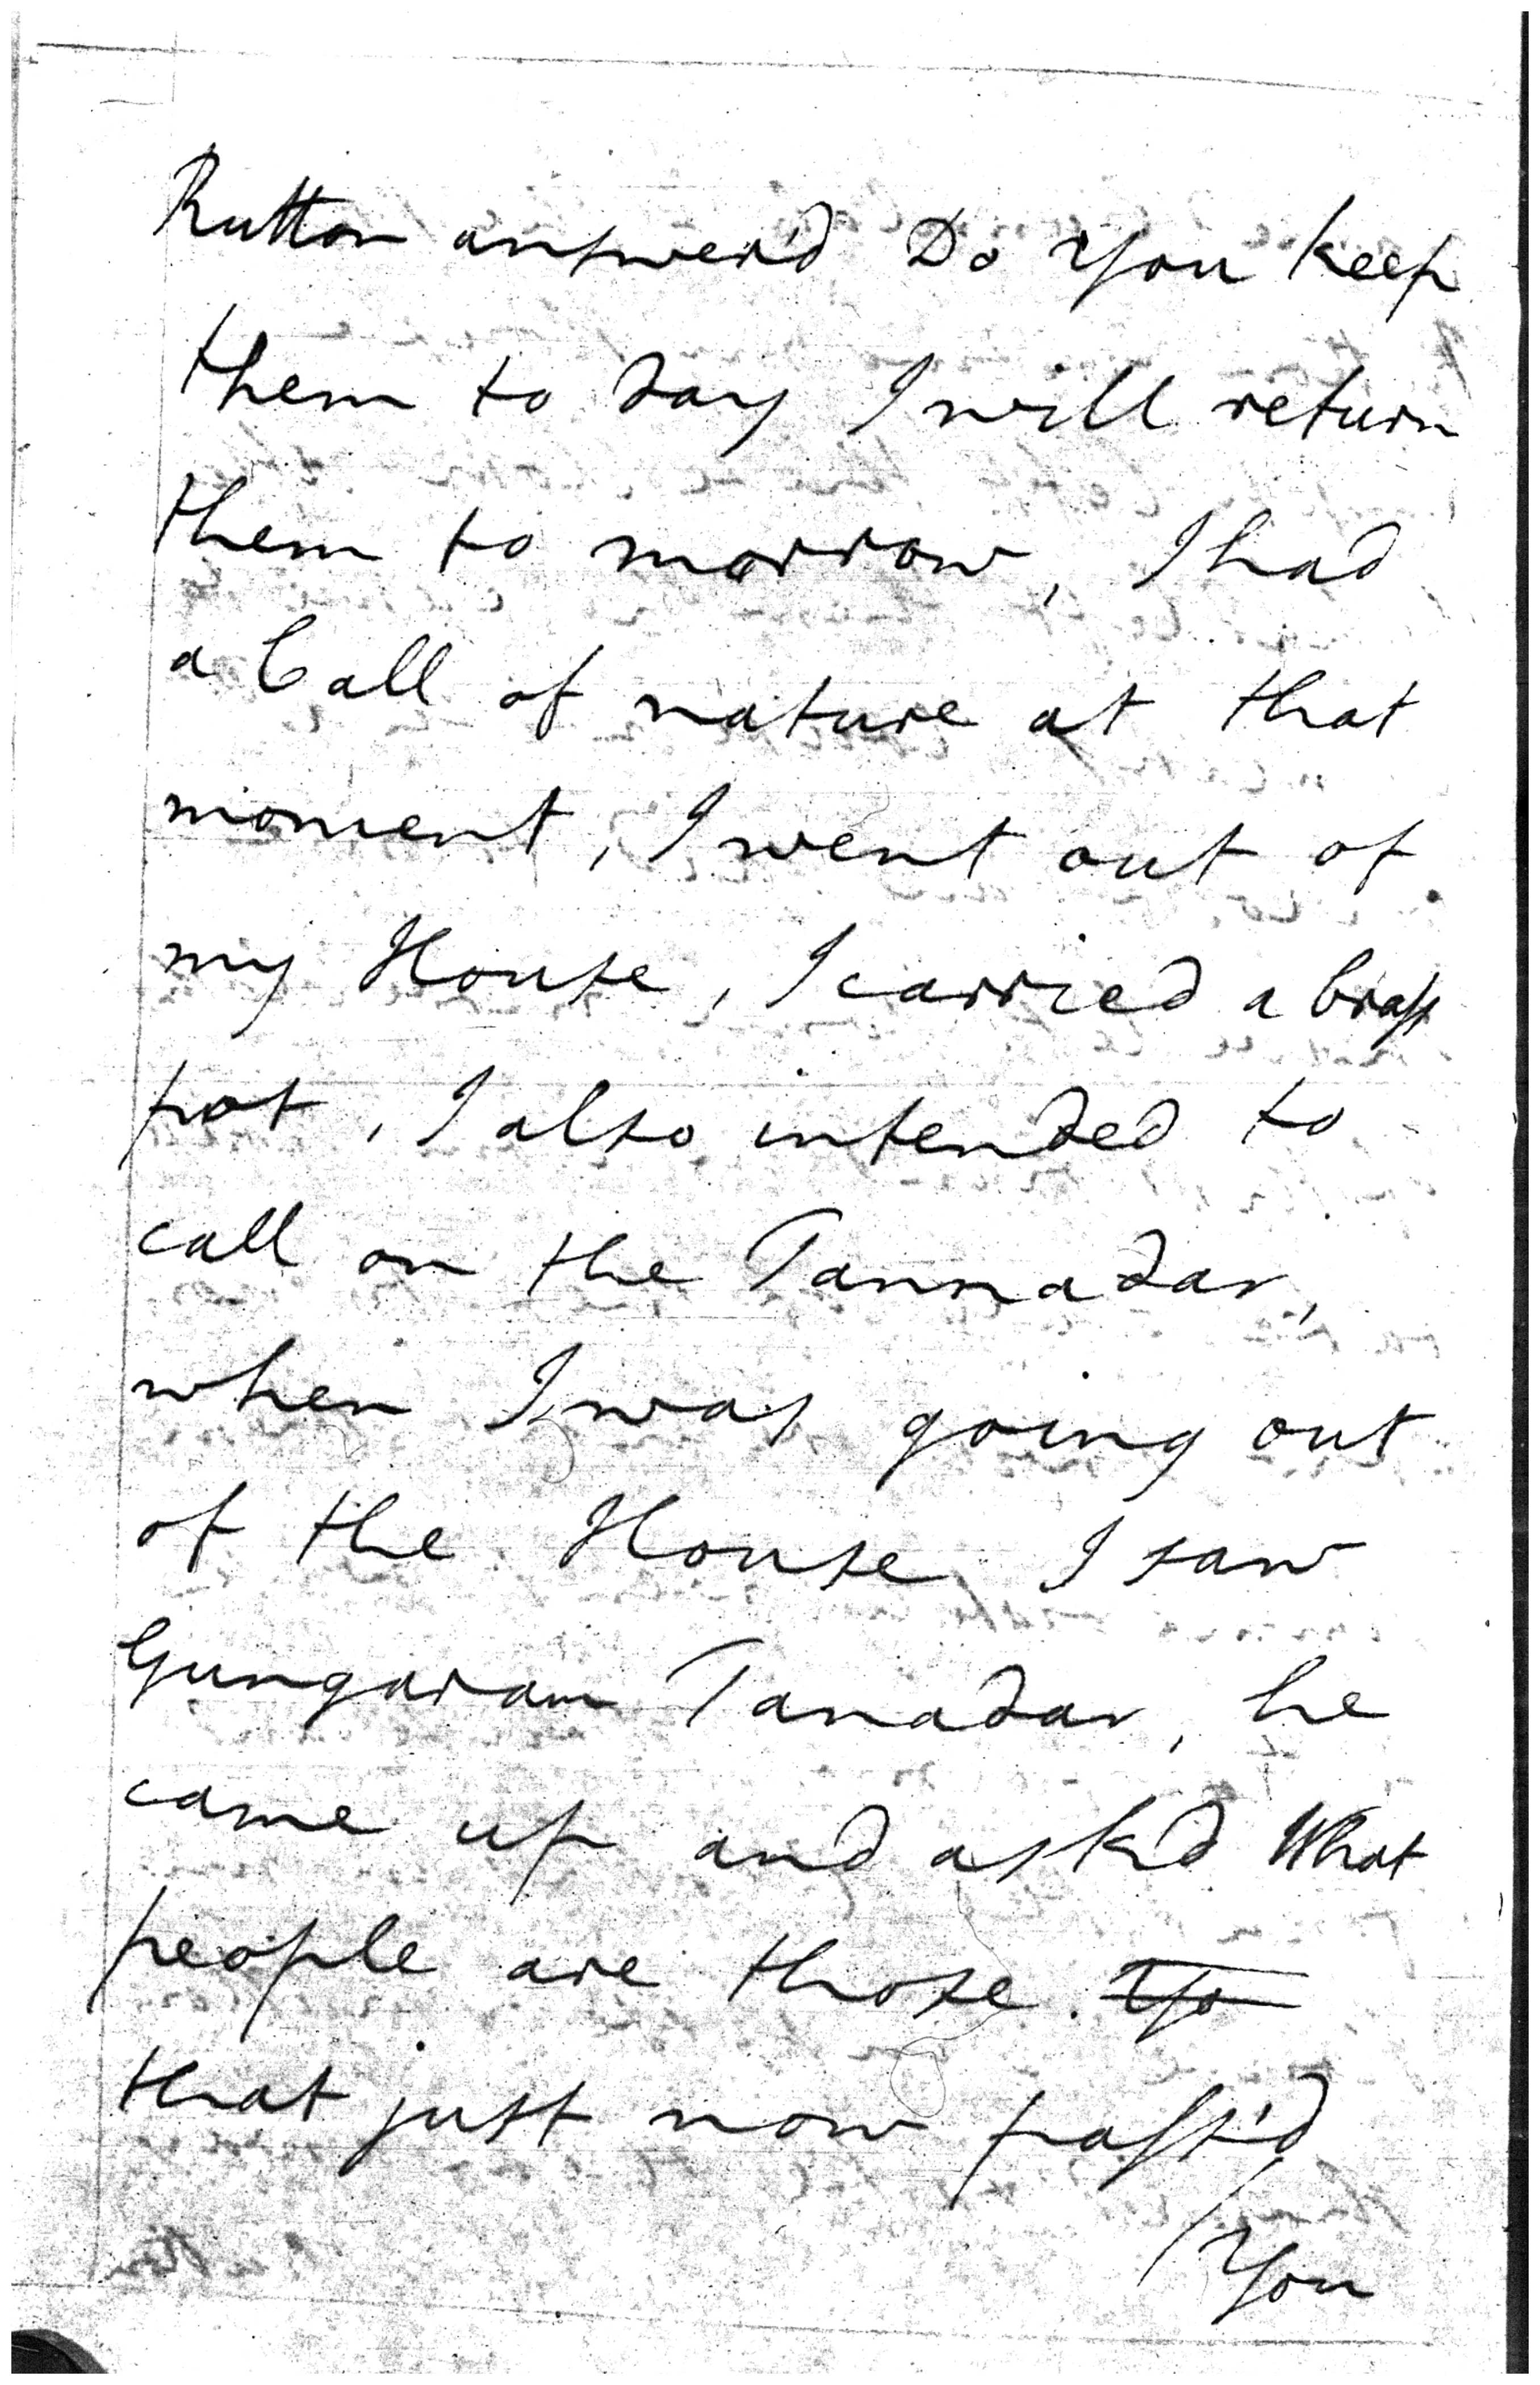 Rutton answer'd Do You keep
them to day I will return
them to morrow, I had
a Call of nature at that
moment, I went out of
my House, I carried a brass
pot, I also intended to
call on the Tannadar,
when I was going out
of the House I saw
Gungaram Tanadar, he
came up and ask'd What
people are those. Yo
that just now pass'd
/You